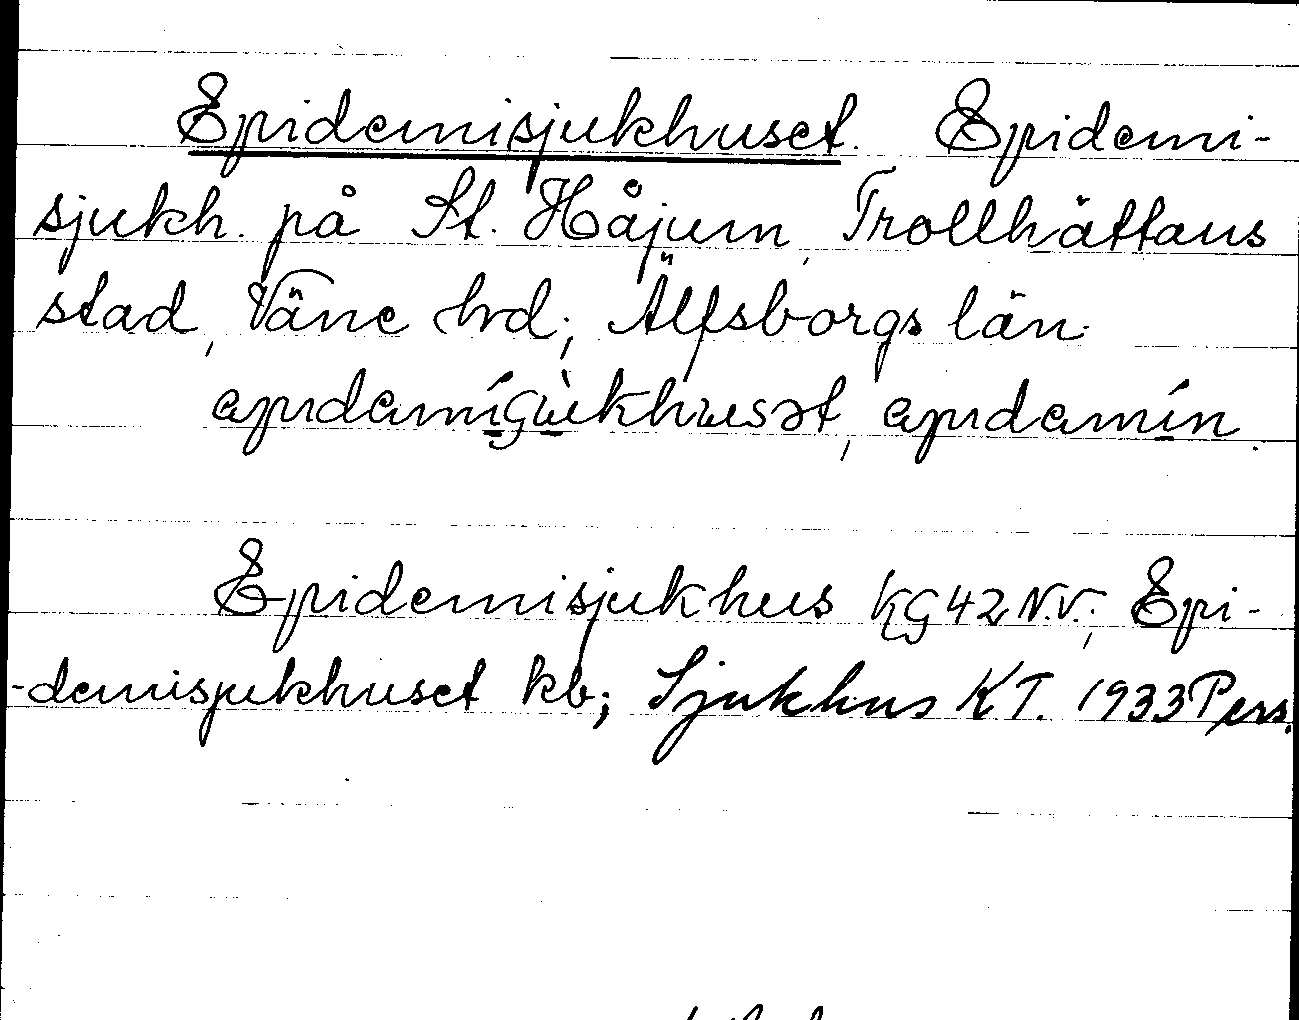 Epidemisjukhuset. Epidemi-
sjukh. på St. Håjum, Trollhättans
stad, Väne hd, Älfsborgs län.
Epidemisjukhus KG42N.V.; Epi-
-demisjukhuset kb; Sjukhus KT. 1933 Pers.